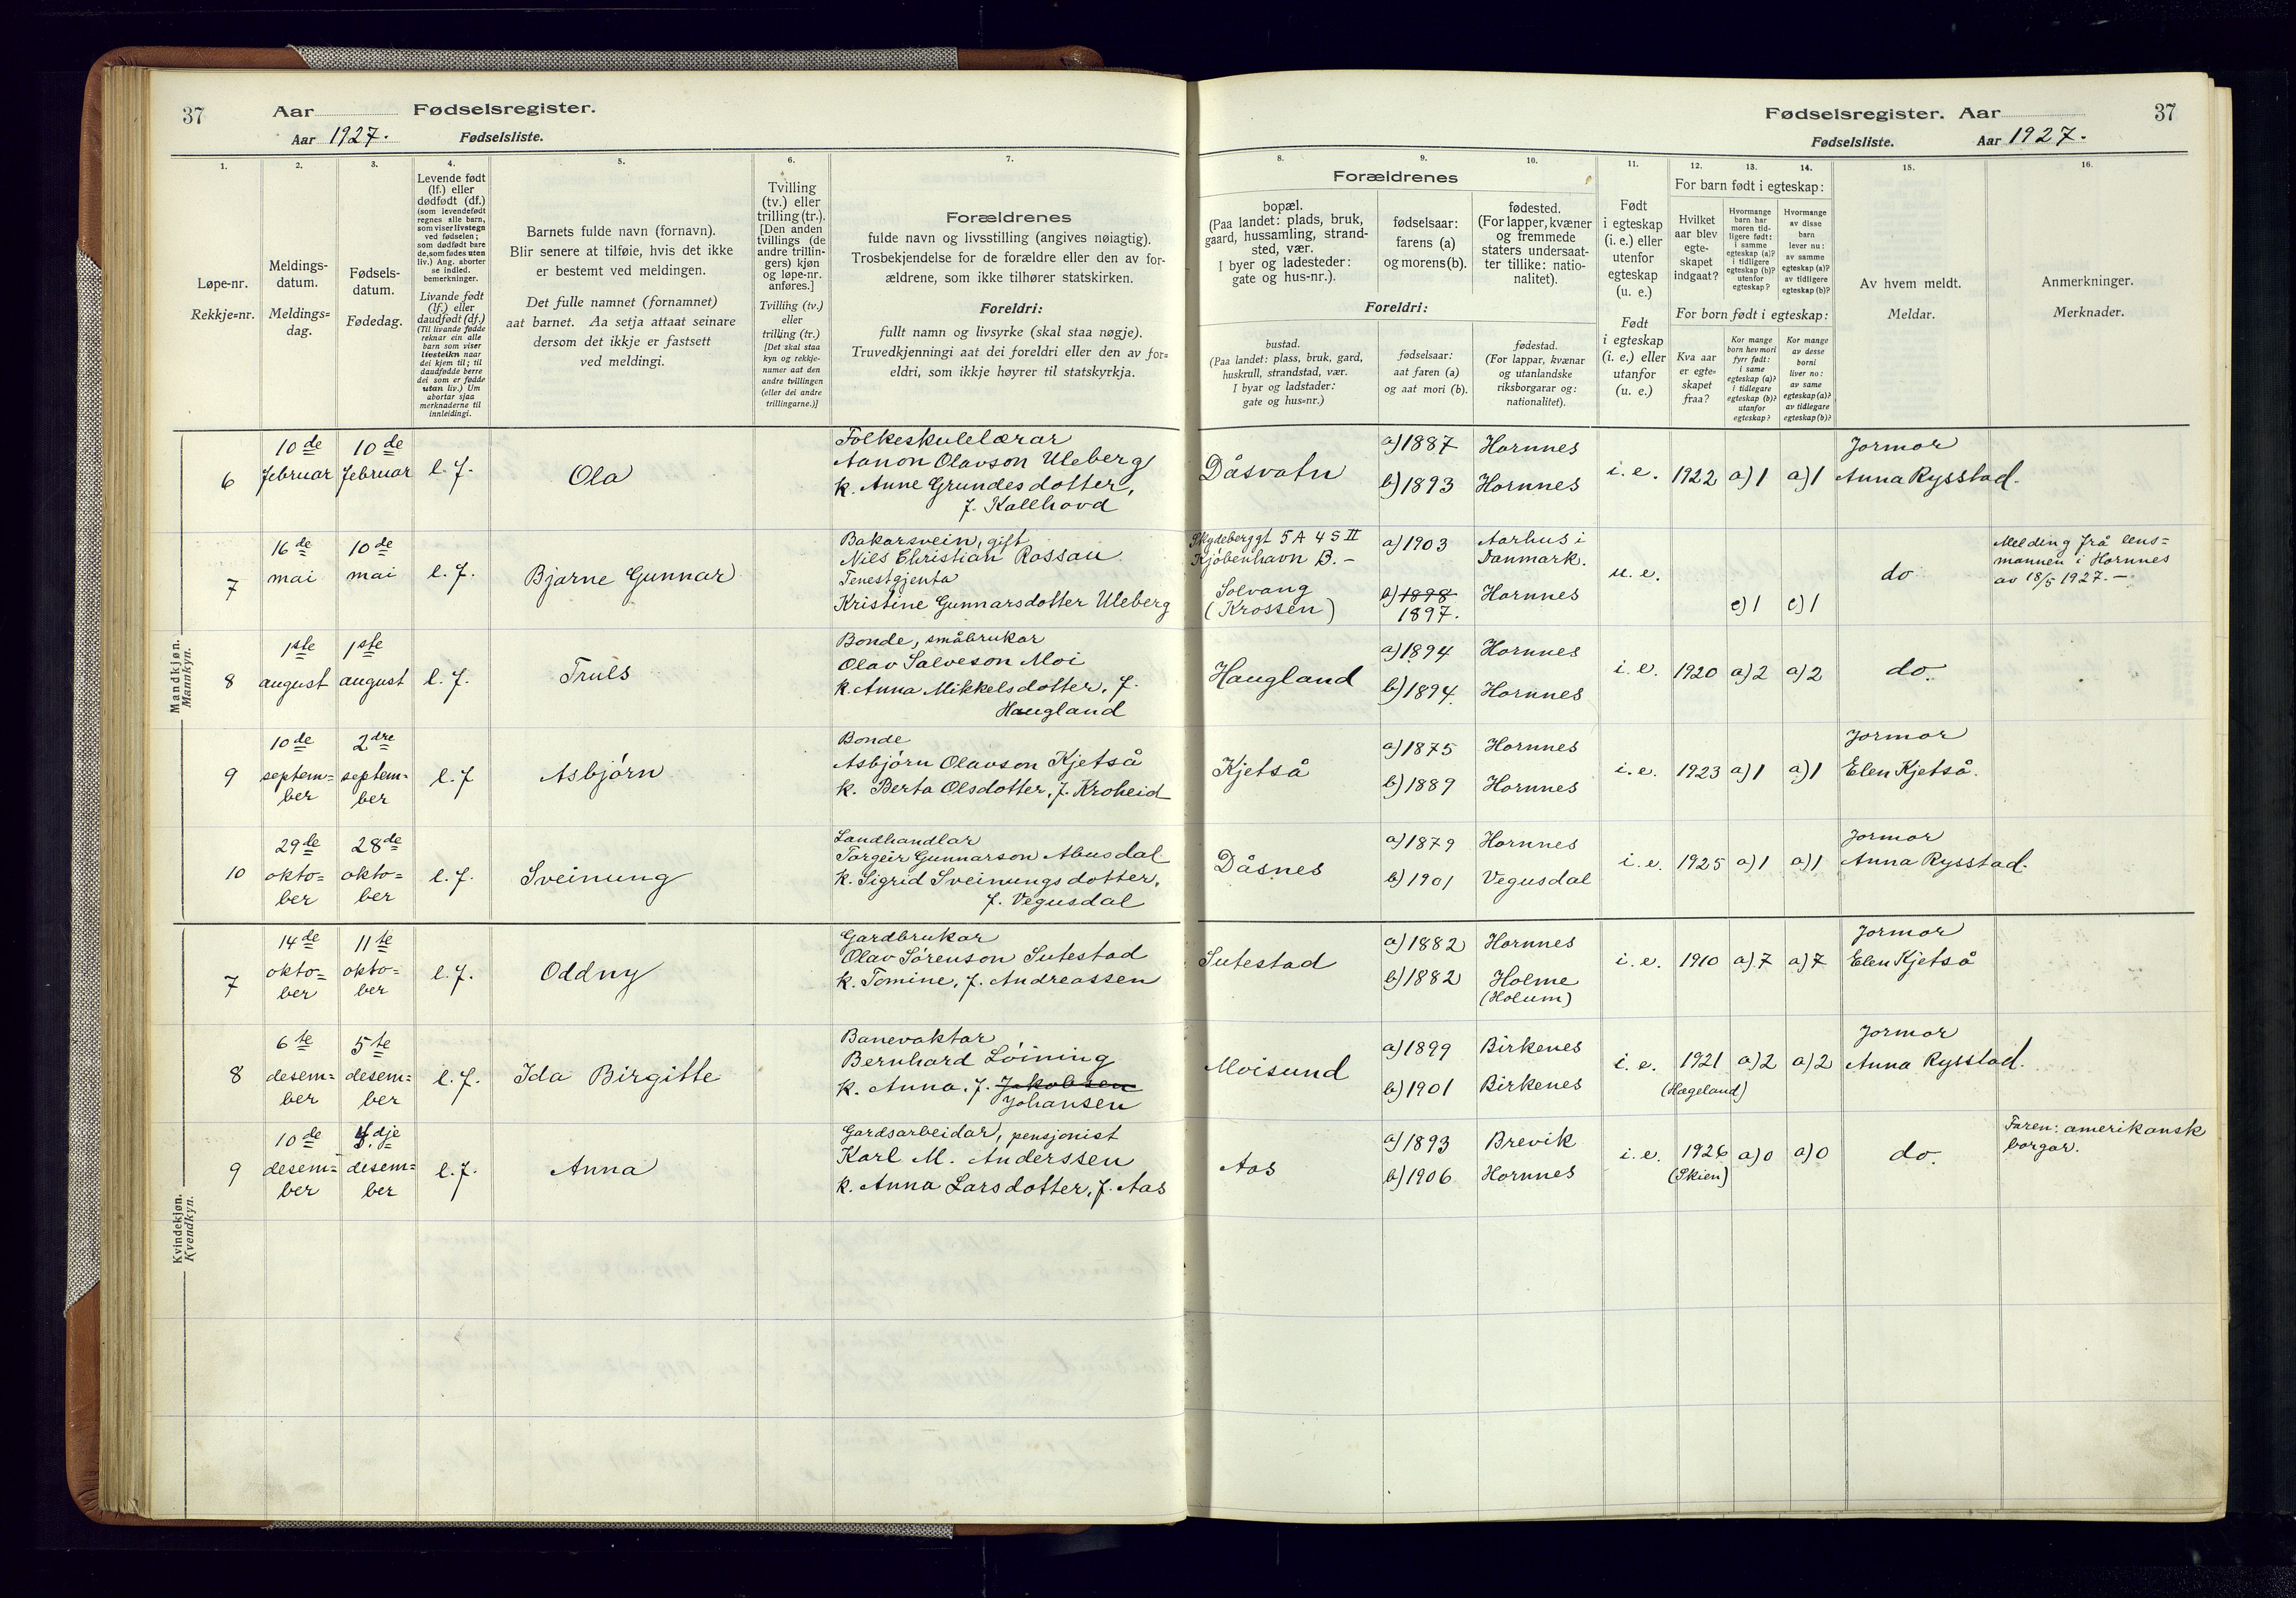 37 Aar Fødselsregister.
Aar 1927. Fødselsliste.
1. 2. 3. 4. 5. 6. 7.
Løpe-nr.
Rekkje=nr.
Meldings-
datum.
Meldings=
dag.
Fødsels-
datum.
Fødedag.
Levende født
(lf.) eller
dødfødt (df.)
(som levendefødt
regnes alle barn,
som viser livstegn
ved fødselen;
som dødfødt bare
de, som fødes uten
liv.) Ang. aborter
se indled.
bemerkninger.
Livande født
(lf.) eller
daudfødt (df.)
(Til livande fødde
reknar ein alle
barn som viser
livsteikn naar
dei kjem til; til
daudfødde berre
dei som er fødde
utan liv.) Um
abortar sjaa
merknaderne til
innleidingi.
Barnets fulde navn (fornavn).
Blir senere at tilføie, hvis det ikke
er bestemt ved meldingen.
Det fulle namnet (fornamnet)
aat barnet. Aa setja attaat seinare
dersom det ikkje er fastsett
ved meldingi.
Tvilling
(tv.) eller
trilling (tr.).
[Den anden
tvillings (de
andre trillin-
gers) kjøn
og løpe-nr.
anføres.]
Tvilling (tv.)
eller
trilling (tr.)
[Det skal staa
kyn og rekkje-
numer aat den
andre tvillingen
(eller dei andre
trillingarne.)]
Forældrenes
fulde navn og livsstilling (angives nøiagtig).
Trosbekjendelse for de forældre eller den av for-
ældrene, som ikke tilhører statskirken.
Foreldri:
fullt namn og livsyrke (skal staa nøgje).
Truvedkjenningi aat dei foreldri eller den av for=
eldri, som ikkje høyrer til statskyrkja.
Mandkjøn.
Mannkyn.
6 10de februar 10de februar l. f. Ola
Folkeskulelærar
Aanon Olavson Uleberg
k. Anne Grundesdotter,
f. Kallhovd
7 16de mai 10de mai l. f. Bjarne Gunnar
Bakarsvein, gift
Niels Christian Rossau
Tenestgjenta
Kristine Gunnarsdotter Uleberg
8 1ste august 1ste august l. f. Truls
Bonde, småbrukar
Olav Salveson Moi
k. Anna Mikkelsdotter, f.
Haugland
9 10de septem=ber 2dre septem=ber l. f Asbjørn
Bonde
Asbjørn Olavson Kjetså
k. Berta Olsdotter, f. Kroheid
10 29de okto=ber 28de okto=ber l. f. Sveinung
Landhandlar
Torgeir Gunnarson Abusdal
k. Sigrid Sveinungsdotter,
f. Vegusdal
Kvindekjøn.
Kvendkyn.
7 14de okto=ber 11te okto=ber l. f. Oddny
Gardbrukar
Olav Sørenson Sutestad
k. Tomine, f. Andreassen
8 6te desem=ber 5te desem=ber l. f. Ida Birgitte
Banevaktar
Bernhard Løining
k. Anna, f. Jakobsen
Johansen
9 10de desem=ber dje desem=ber l. f. Anna
Gardsarbeidar, pensjonist
Karl M. Anderssen
k. Anna Larsdotter, f. Aas
Fødselsregister. Aar 37
Fødselsliste. Aar 1927.
8. 9. 10. 11. 12. 13. 14. 15. 16.
Forældrenes
bopæl.
(Paa landet: plads, bruk,
gaard, hussamling, strand-
sted, vær.
I byer og ladesteder:
gate og hus-nr.).
fødselsaar:
farens (a)
og morens (b).
fødested.
(For lapper, kvæner
og fremmede
staters undersaat-
ter tillike: natio-
nalitet).
Foreldri:
bustad.
(Paa landet: plass, bruk, gard,
huskrull, strandstad, vær.
I byar og ladstader:
gate og hus=nr.)
fødselsaar:
aat faren (a)
og aat mori (b).
fødestad.
(For lappar, kvænar
og utanlandske
riksborgarar og:
nationalitet).
Født
i egteskap
(i. e.) eller
utenfor
egteskap
(u. e.)
Født
i egteskap
(i. e.) eller
utanfor
egteskap
(u. e.)
For barn født i egteskap:
Hvilket
aar blev
egte-
skapet
indgaat?
Hvormange
barn har
moren tid-
ligere født:
i samme
egteskap (a)?
i tidligere
egteskap (b)?
utenfor
egteskap?
Hvormange
av disse
barn
lever nu:
av samme
egteskap (a)?
av tidligere
egteskap (b)?
For born født i egteskap:
Kva aar
er egte-
skapet
fraa?
Kor mange
born hev mori
fyrr født:
i same
egteskap (a)?
i tidlegare
egteskap (b)?
utanfor
egteskap?
Kor mange
av desse
borni
liver no:
av same
egteskap (a)?
av tidlegare
egteskap (b)?
Av hvem meldt.
Meldar.
Anmerkninger.
Merknader.
Dåsvatn
a) 1887 Hornnes
b) 1893 Hornnes
i. e. 1922 a) 1 a) 1
Jormor
Anna Rysstad.
Skydeberggt 5 A 4 S II
Kjøbenhavn B. -
Solvang
(Krossen)
a) 1903 Aarhus i
Danmark.
b) 1898 Hornnes
1897.
u. e. c) 1 c) 1
do
Melding frå lens=
mannen i Hornnes
av 18/5 1927. -
Haugland
a) 1894 Hornnes
b) 1894. Hornnes
i. e. 1920 a) 2 a) 2 do.
Kjetså
a) 1875 Hornnes
b) 1889 Hornnes
i. e. 1923 a) 1 a) 1
Jormor
Elen Kjetså.
Dåsnes
a) 1879 Hornnes
b) 1901 Vegusdal
i. e. 1925 a) 1 a) 1
Jormor
Anna Rysstad.
Sutestad
a) 1882 Hornnes
b) 1882 Holme
(Holum)
i. e. 1910 a) 7 a) 7
Jormor
Elen Kjetså
Moisund
a) 1899 Birkenes
b) 1901 Birkenes
i. e. 1921 a) 2 a) 2
(Hægeland)
Jormor
Anna Rysstad.
Aas
a) 1893 Brevik
b) 1906 Hornnes
i. e. 1926 a) 0 a) 0
(Skien)
do.
Faren: amerikansk
borgar.